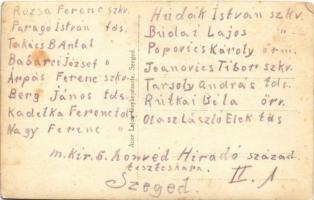 Rózsa Ferenc szkv.
Faragó István tds.
Takács B Antal "
Babarci József "
Árpás Ferenc szkv.
Berg János tds.
Kadelka Ferenc tds
Nagy Ferenc "
Hudák István szkv.
Budai Lajos "
Popovics Károly őrm.
Joanovics Tibor szkv.
Tarsoly András tds.
Rutkai Béla őrv.
Olasz László Elek tds
m. kir. 5. honvéd Hiradó század
tisztesikara.
Szeged. II. 1
Szeged.